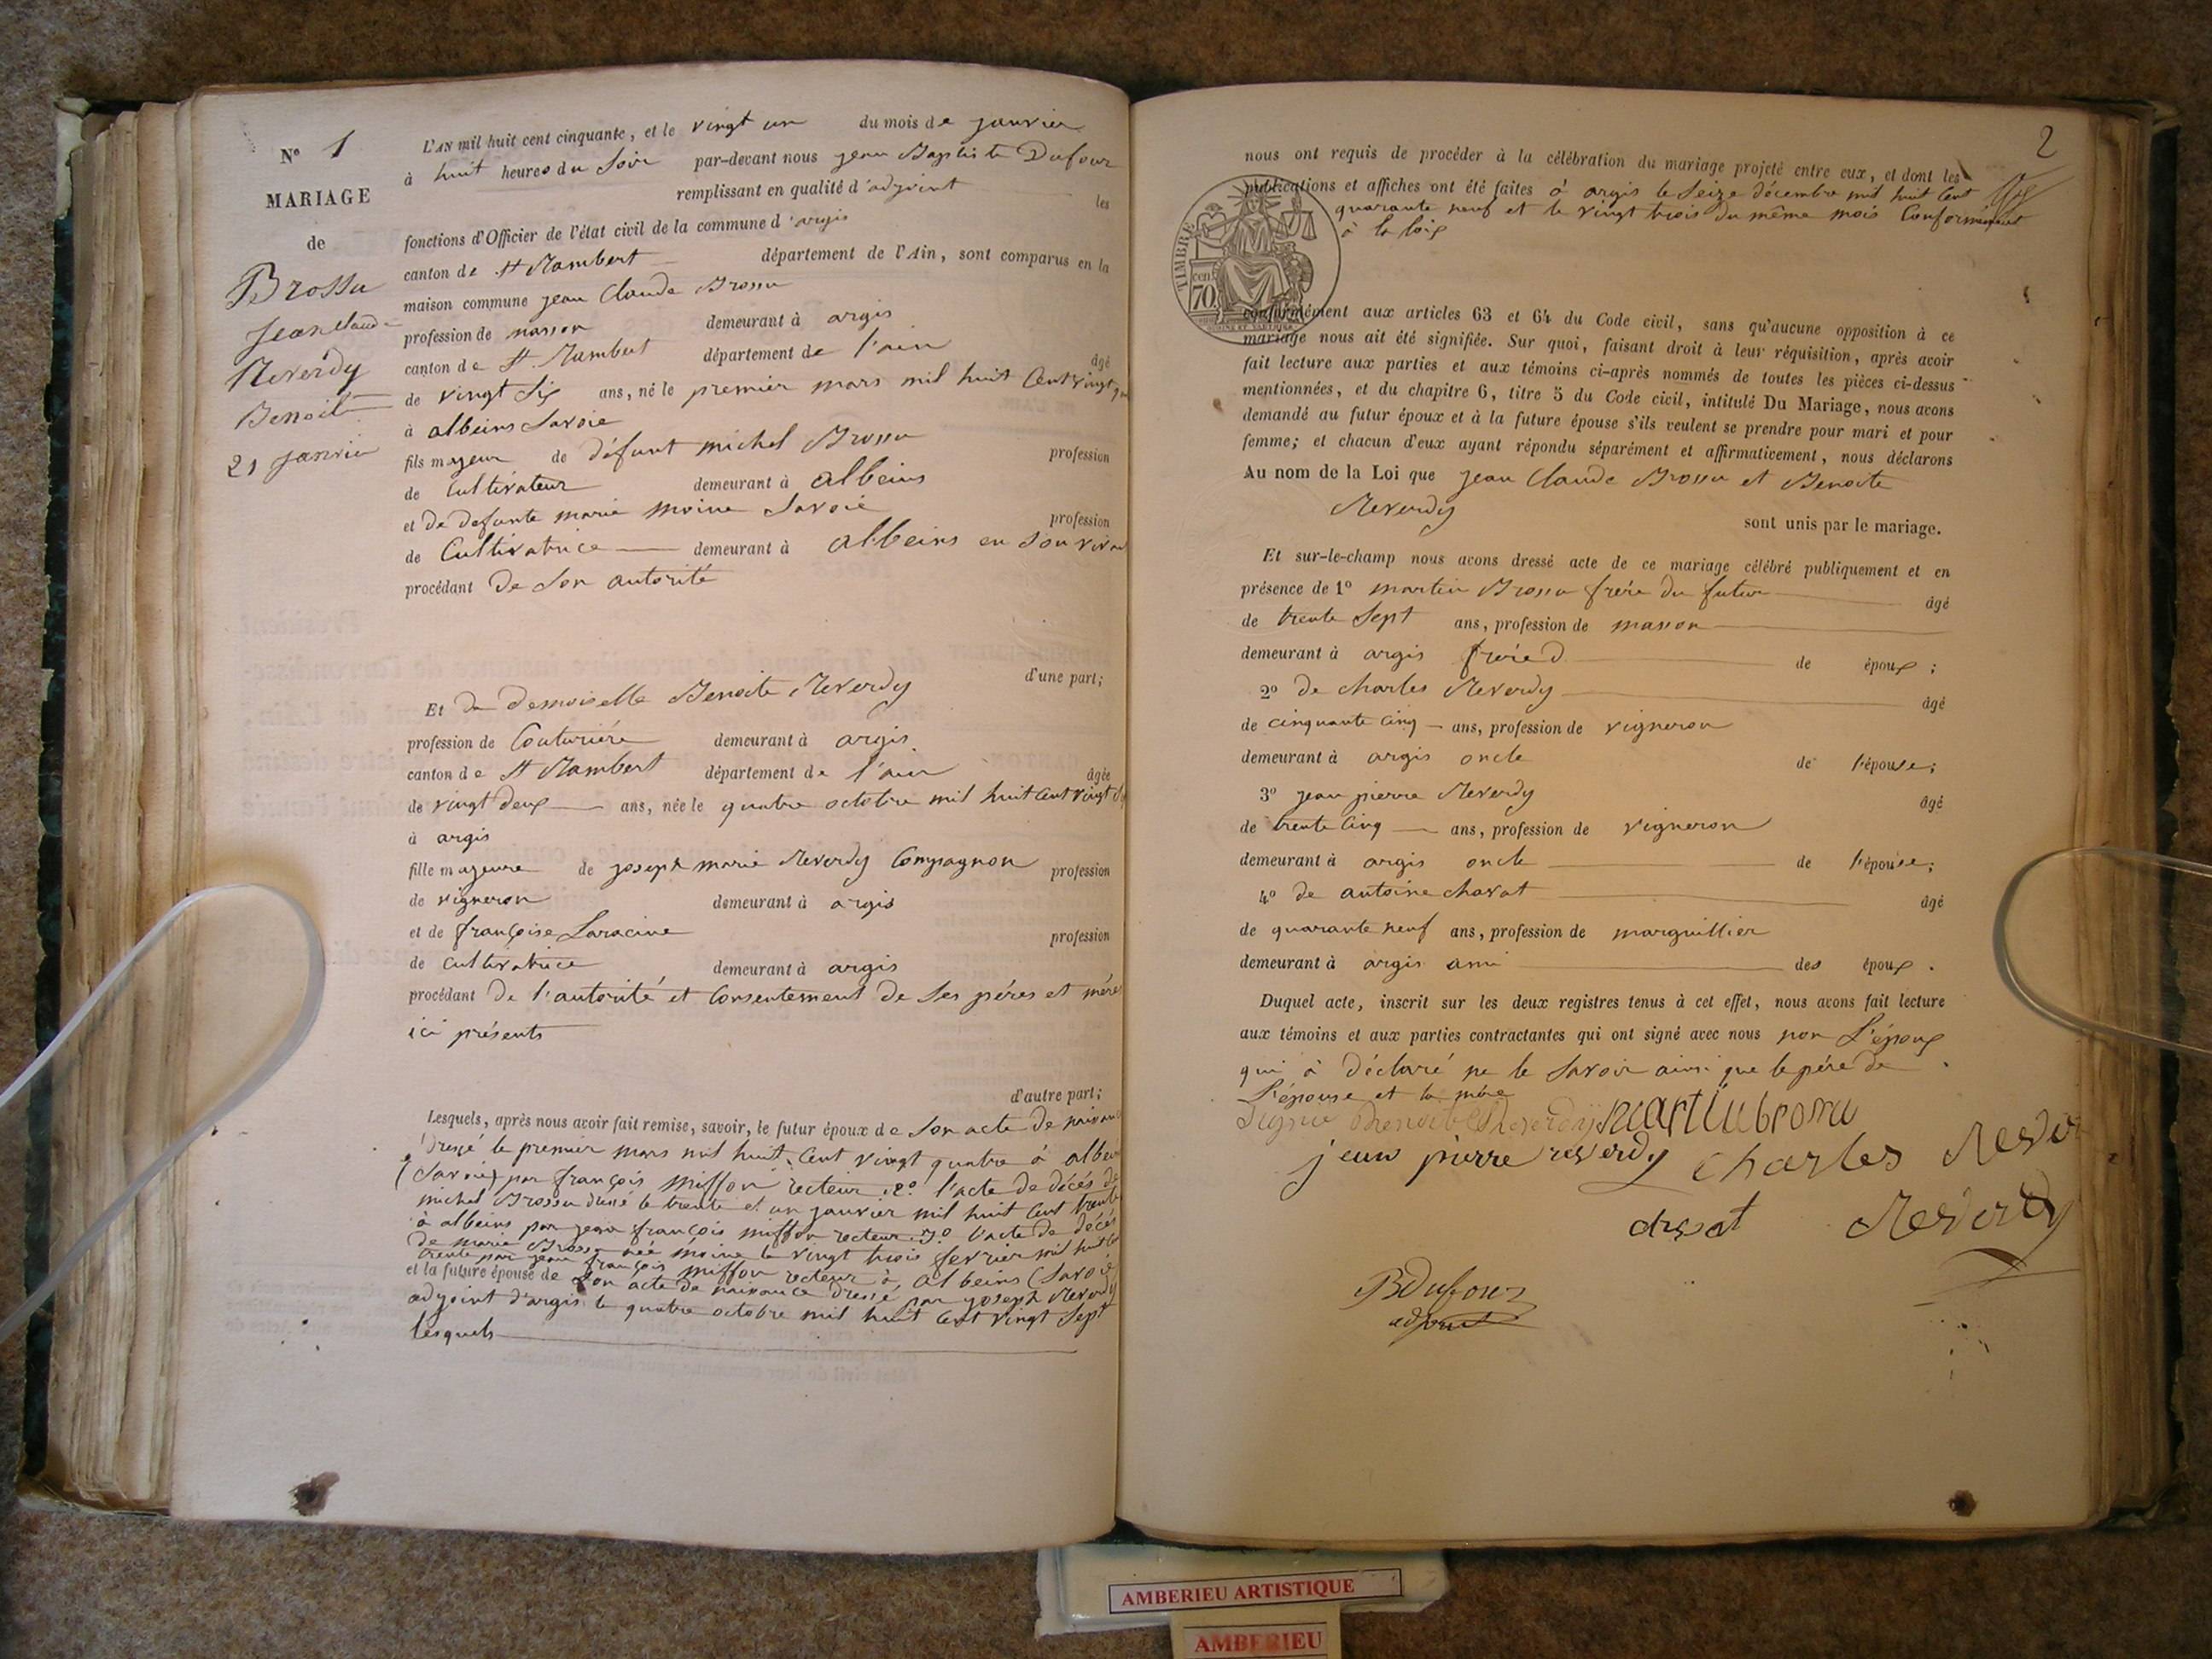 N° 1
MARIAGE
de
Brossu
Jean Claude
Reverdy
Benoite
21 janvier
L'AN mil huit cent cinquante, et le vingt un du mois de janvier
à huit heures du soir par-devant nous jean Baptiste Dufour
remplissant en qualité d'adjoint les
fonctions d'Officier de l'état civil de la commune d'argis
canton de St Rambert département de l'Ain, sont comparus en la
maison commune jean Claude Brossu
profession de masson demeurant à argis
canton de St Rambert département de l'ain âgé
de vingt six ans, né le premier mars mil huit Cent vingt
à albeins Savoie
fils majeur de défunt michel Brossu profession
de Cultivateur demeurant à albeins
et de defunte marie moine Savoie profession
de Cultivatrice demeurant à albeins en son vivant
procédant de son autorité
d'une part;
Et de demoiselle Benoite Reverdy
profession de Couturiére demeurant à argis
canton de St Rambert département de l'ain âgée
de vingt deux ans, née le quatre octobre mil huit Cent vingt
à argis
fille majeure de joseph marie Reverdy Compagnon profession
de vigneron demeurant à argis
et de françoise Laracine profession
de cultivatrice demeurant à argis
procédant de l'autorité et Consentement de ses péres et mére
ici présents
d'autre part;
Lesquels, après nous avoir fait remise, savoir, le futur époux de son acte de naissance
dressé le premier mars mil huit Cent vingt quatre à albeins
(Savoie) par françois miffon recteur 2° l'acte de décés de
michel Brossu dressé le trente et un janvier mil huit Cent trente
à albeins par jean françois miffon recteur 3° l'acte de décés
de marie Brossu née moine le vingt trois fevrier mil huit Cent
trente par jean françois miffon recteur à albeins (Savoie)
et la future épouse de son acte de naissance dressé par joseph Reverdy
adjoint d'argis le quatre octobre mil huit Cent vingt Sept
lesquels
2
nous ont requis de procéder à la célébration du mariage projeté entre eux, et dont les
publications et affiches ont été faites à argis le Seize décembre mil huit Cent
quarante neuf et le vingt trois du même mois Conformément
à la loix
TIMBRE
70 cen.
conformément aux articles 63 et 64 du Code civil, sans qu'aucune opposition à ce
mariage nous ait été signifiée. Sur quoi, faisant droit à leur réquisition, après avoir
fait lecture aux parties et aux témoins ci-après nommés de toutes les pièces ci-dessus
mentionnées, et du chapitre 6, titre 5 du Code civil, intitulé Du Mariage, nous avons
demandé au futur époux et à la future épouse s'ils veulent se prendre pour mari et pour
femme; et chacun d'eux ayant répondu séparément et affirmativement, nous déclarons
Au nom de la Loi que jean Claude Brossu et Benoite
Reverdy
sont unis par le mariage.
Et sur-le-champ nous avons dressé acte de ce mariage célébré publiquement et en
présence de 1° martin Brossu frére du futur âgé
de trente Sept ans, profession de masson
demeurant à argis de époux;
2° de charles Reverdy âgé
de cinquante cinq ans, profession de vigneron
demeurant à argis oncle de l'épouse;
3° jean pierre Reverdy âgé
de trente Cinq ans, profession de vigneron
demeurant à argis oncle de l'épouse;
4° de antoine chavat âgé
de quarante neuf ans, profession de marguillier
demeurant à argis ami des époux.
Duquel acte, inscrit sur les deux registres tenus à cet effet, nous avons fait lecture
aux témoins et aux parties contractantes qui ont signé avec nous non L'époux
qui à déclaré ne le savoir ainsi que le pére de
L'épouse et la mére
martin brossu
jean pierre reverdy charles Reverdy
Reverdy
BDufour
adjoint
AMBERIEU ARTISTIQUE
AMBERIEU